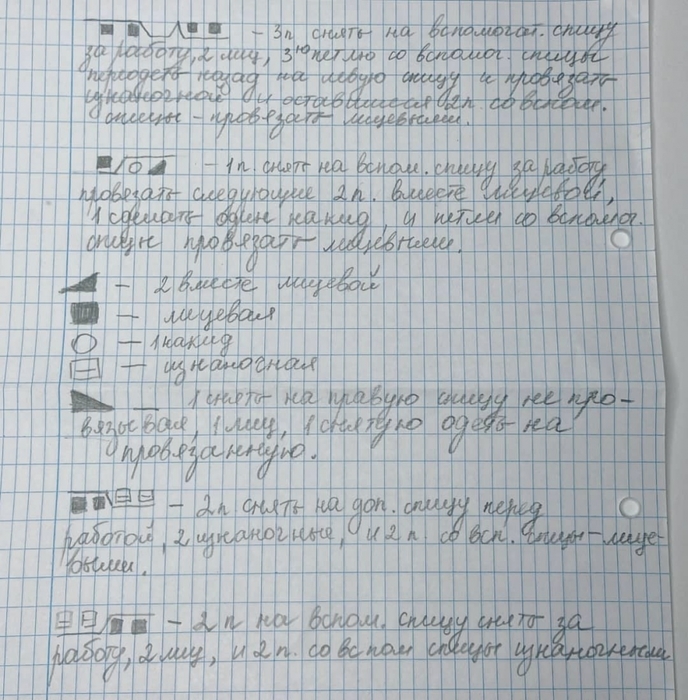 - 3п снять на вспомогат. спицу
за работу, 2 лиц, 3ю петлю со вспомог. спицы
переодеть назад на левую спицу и провязать
изнаночной и оставшиеся 2п. со вспом.
спицы - провязать лицевыми.
- 1п. снять на вспом. спицу за работу
провязать следующие 2п. вместе лицевой,
1 сделать один накид, и петли со вспомог.
спицы провязать лицевыми.
- 2 вместе лицевой
- лицевая
- 1 накид
- изнаночная
- 1 снять на правую спицу не про-
вязывая, 1 лиц, 1 снятую одеть на
провязанную.
- 2п снять на доп. спицу перед
работой, 2 изнаночные, и 2 п. со всп. спицы - лице-
выми.
- 2 п на вспом. спицу снять за
работу, 2 лиц, и 2 п. со вспом спицы изнаночными